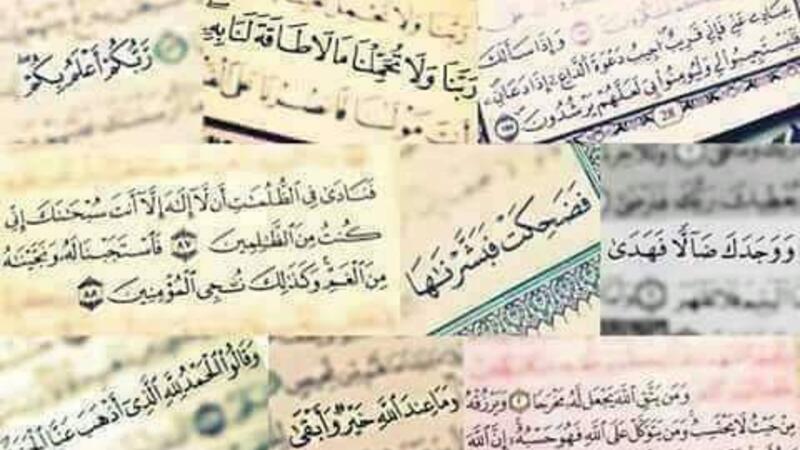 رَّبُّكُمْ أَعْلَمُ بِكُمْ
رَبَّنَا وَلَا تُحَمِّلْنَا مَا لَا طَاقَةَ لَنَا بِهِ
وَإِذَا سَأَلَكَ
عِبَادِي عَنِّي فَإِنِّي قَرِيبٌ أُجِيبُ دَعْوَةَ الدَّاعِ إِذَا دَعَانِ
فَلْيَسْتَجِيبُوا لِي وَلْيُؤْمِنُوا بِي لَعَلَّهُمْ يَرْشُدُونَ ١٨٦
28
فَنَادَىٰ فِي الظُّلُمَٰتِ أَن لَّا إِلَٰهَ إِلَّا أَنتَ سُبْحَٰنَكَ إِنِّي
كُنتُ مِنَ الظَّٰلِمِينَ ٨٧ فَاسْتَجَبْنَا لَهُ وَنَجَّيْنَٰهُ
مِنَ الْغَمِّ وَكَذَٰلِكَ نُۨجِي الْمُؤْمِنِينَ ٨٨
فَضَحِكَتْ فَبَشَّرْنَٰهَا
وَوَجَدَكَ ضَآلًّا فَهَدَىٰ
وَقَالُوا الْحَمْدُ لِلَّهِ الَّذِي أَذْهَبَ عَنَّا الْحَزَنَ
وَمَا عِندَ اللَّهِ خَيْرٌ وَأَبْقَىٰ
وَمَن يَتَّقِ اللَّهَ يَجْعَل لَّهُ مَخْرَجًا ٢ وَيَرْزُقْهُ
مِنْ حَيْثُ لَا يَحْتَسِبُ وَمَن يَتَوَكَّلْ عَلَى اللَّهِ فَهُوَ حَسْبُهُ إِنَّ اللَّهَ